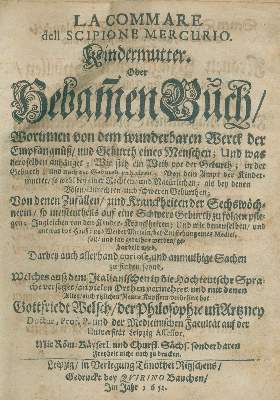 LA COMMARE
dell SCIPIONE MERCURIO.
Kindermutter.
Oder
Hebam̃en Buch/
Worinnen von dem wunderbaren Werck der
Empfängnüß/ und Gebuhrt eines Menschen; Und was
deroselben anhänget; Wie sich ein Weib vor der Gebuhrt; in der
Gebuhrt; und nach der Gebuhrt Von dem Ampt der Kinder-
mutter/ so wohl bey einer und Natürlichen; als bey denen
Bösen schweren Gebuhrten;
Von denen Zufällen/ und Kranckheiten der Sechswöch-
nerin/ so insgemein auf eine Schwere Gebuhrt zu folgen pfle-
gen; Ingleichen von der Kinder Kranckheiten; Und wie denenselben/ und
Medici,
soll/ und kan gerathen werden/ ge-
handelt wird.
Darbey auch allerhand curiose und anmuthige Sachen
zu finden seynd.
Welches auß dem Italianischen in die Hochteutsche Spra-
che versetzet/ an vielen Orthen vermehret/ und mit denen
hat
Gottfriedt Welsch/ der Philosophie uñ Artzney
Doctor, Prof. P. und der Medicinischen Facultät auf der
Universität Leipzig Assessor.
Mit Röm. Käyserl. und Churf. Sächs. sonderbaren
Freyheit nicht nach zu drucken.
Leipzig/ in Verlegung Timothei Ritzschens/
Gedruckt bey QVIRINO Bauchen/
Im Jahr 1652.